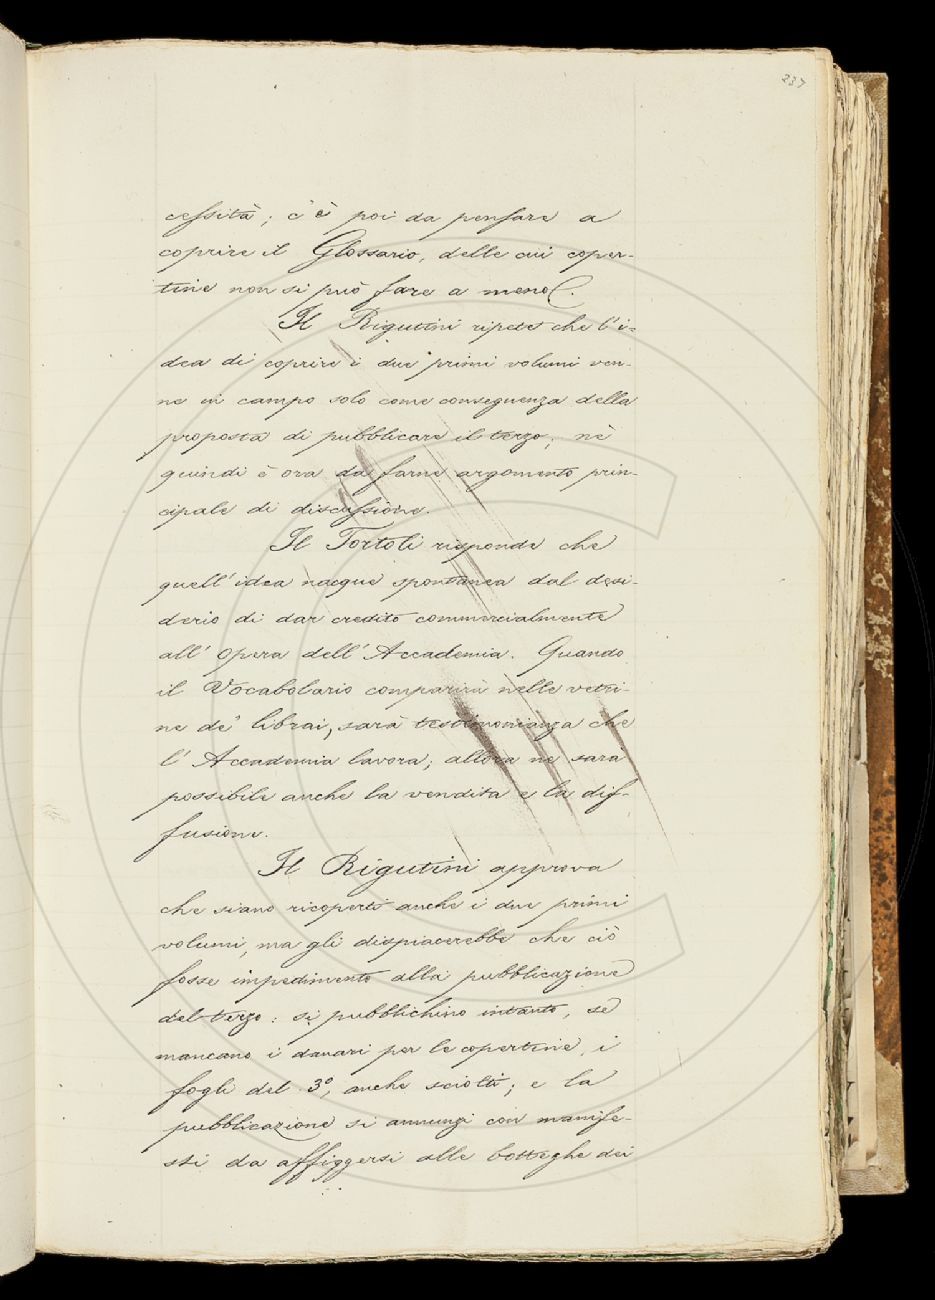 237
cessità; c'è poi da pensare a
coprire il Glossario, delle cui coper-
tine non si può fare a meno.
Il Rigutini ripete che l'i-
dea di coprire i due primi volumi ven-
ne in campo solo come conseguenza della
proposta di pubblicare il terzo; nè
quindi è ora da farne argomento prin-
cipale di discussione.
Il Tortoli risponde che
quell'idea nacque spontanea dal desi-
derio di dar credito commercialmente
all'opera dell'Accademia. Quando
il Vocabolario comparirà nelle vetri-
ne de' librai, sarà testimonianza che
l'Accademia lavora; allora ne sarà
possibile anche la vendita e la dif-
fusione.
Il Rigutini approva
che siano ricoperti anche i due primi
volumi, ma gli dispiacerebbe che ciò
fosse impedimento alla pubblicazione
del terzo: si pubblichino intanto, se
mancano i danari per le copertine, i
fogli del 3º, anche sciolti; e la
pubblicazione si annunzi con manife-
sti da affiggersi alle botteghe dei